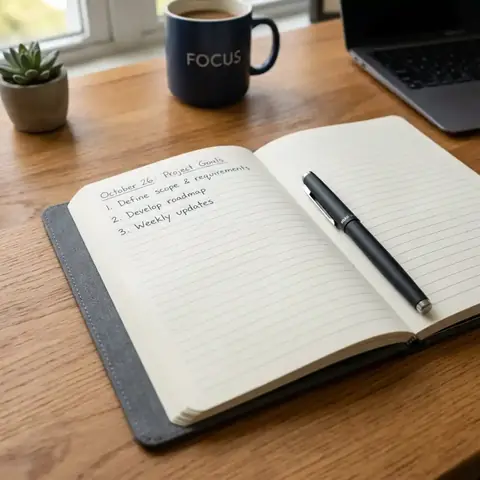 FOCUS
October 26: Project Goals
1. Define scope & requirements
2. Develop roadmap
3. Weekly updates